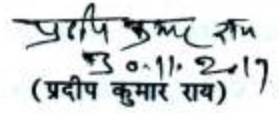 प्रदीप कुमार राय
30.11.2017
(प्रदीप कुमार राय)